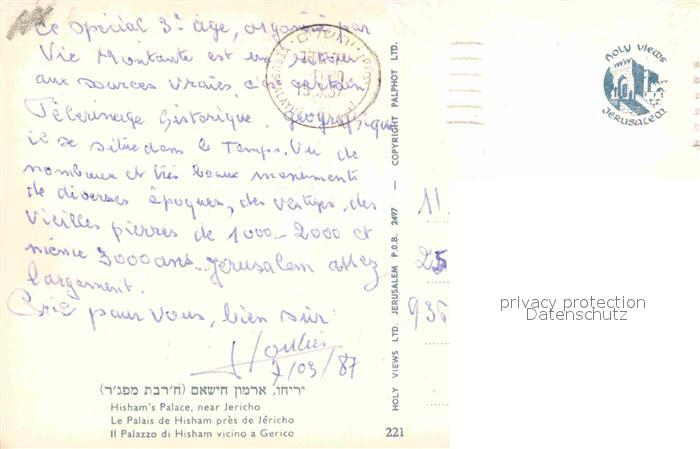 Ce spécial 3e âge, organisé par
Vie Montante est un retour
aux sources vraies, c'est certain
Pèlerinage historique. géographique
il se situe dans le Temps. Vu de
nombreux et très beaux monuments
de diverses époques, des vestiges des
vieilles pierres de 1000 - 2000 et
même 3000 ans. Jérusalem assez
largement.
Prié pour vous, bien sûr
7/03/87
יריחו, ארמון חישאם (ח'רבת מפג'ר)
Hisham's Palace, near Jericho
Le Palais de Hisham près de Jéricho
Il Palazzo di Hisham vicino a Gerico
221
HOLY VIEWS LTD. JERUSALEM P.O.B. 2497 — COPYRIGHT PALPHOT LTD.
ירושלים
HOLY VIEWS
JERUSALEM
11.
25
935
privacy protection
Datenschutz